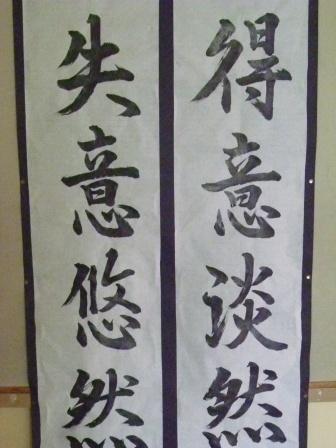 得意淡然
失意悠然